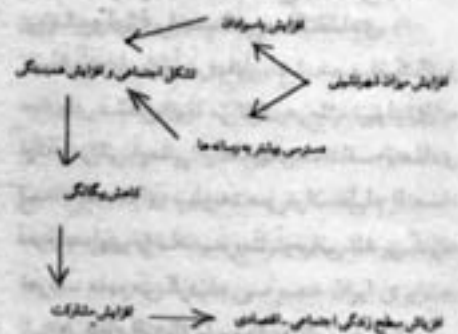 افزایش باسوادان
تشکل اجتماعی و افزایش همبستگی
افزایش میزان شهرنشینی
دسترسی بیشتر به رسانه ها
کاهش بیگانگی
افزایش مشارکت
افزایش سطح زندگی اجتماعی - اقتصادی